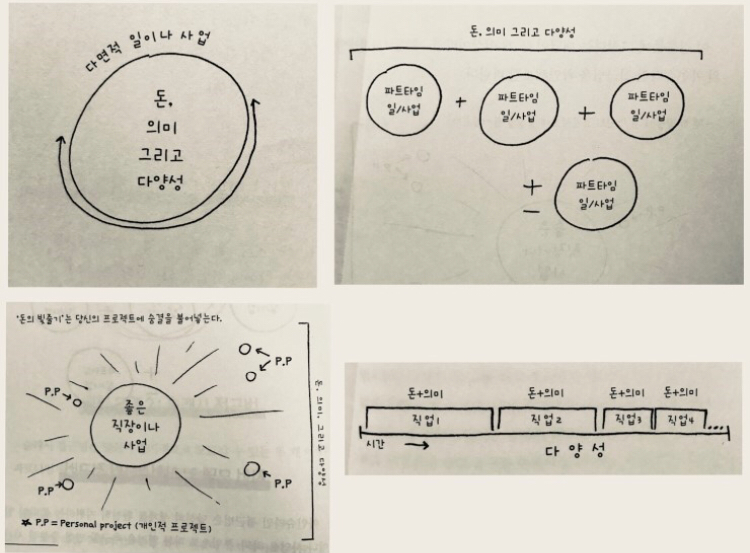 다면적 일이나 사업
돈,
의미
그리고
다양성
돈, 의미 그리고 다양성
파트타임
일/사업
+
파트타임
일/사업
+
파트타임
일/사업
+
−
파트타임
일/사업
'돈의 빛줄기'는 당신의 프로젝트에 숨결을 불어넣는다.
P.P
P.P
좋은
직장이나
사업
P.P
P.P
돈, 의미, 그리고 다양성
★ P.P = Personal project (개인적 프로젝트)
돈+의미 돈+의미 돈+의미 돈+의미
직업1 직업2 직업3 직업4 ....
시간 다양성